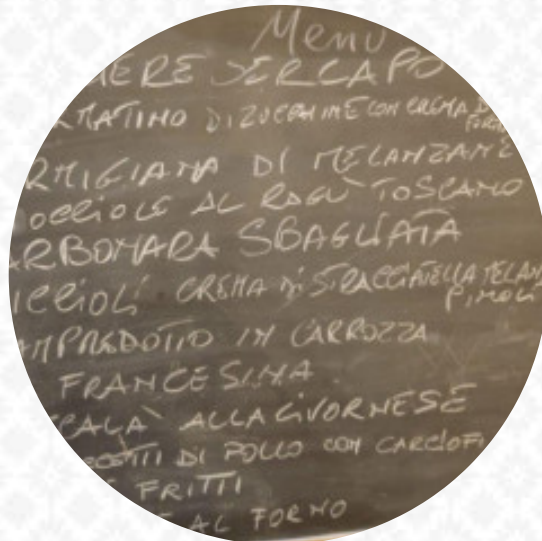 Menu
MERE DER CAPO
RMATINO DI ZUCCHINE CON CREMA DI
FORM
RMIGIANA DI MELANZANE
OCCIOLE AL RAGU' TOSCANO
ARBONARA SBAGLIATA
ICCIOLI CREMA DI STRACCIATELLA MELAN
PINOLI
AMPREDOTTO IN CARROZZA
FRANCESINA
CCALA' ALLA LIVORNESE
DI POLLO CON CARCIOFI
FRITTI
AL FORNO